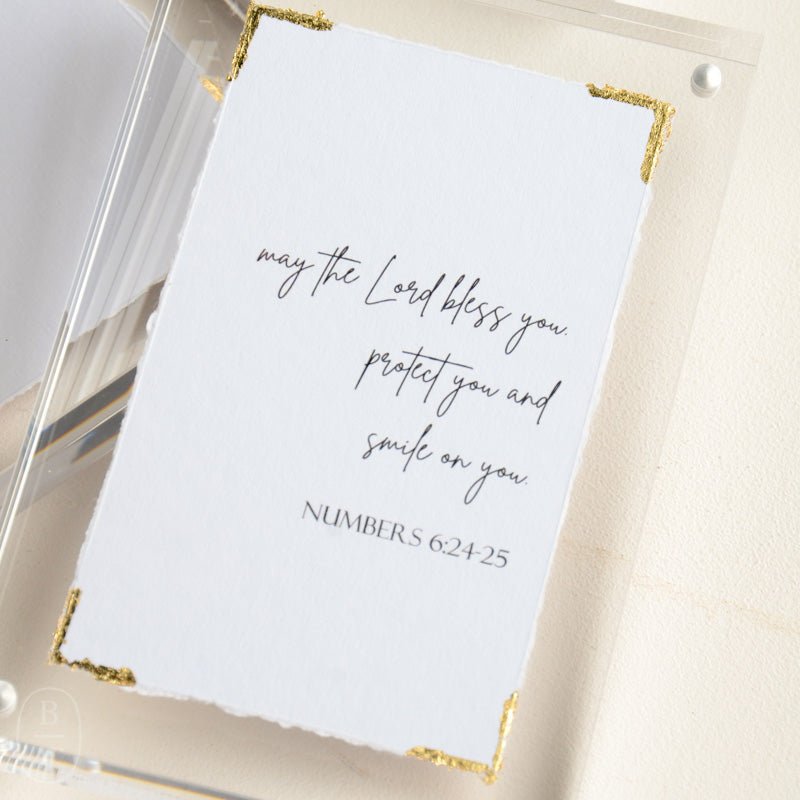 may the Lord bless you.
protect you and
smile on you.
NUMBERS 6:24-25
B